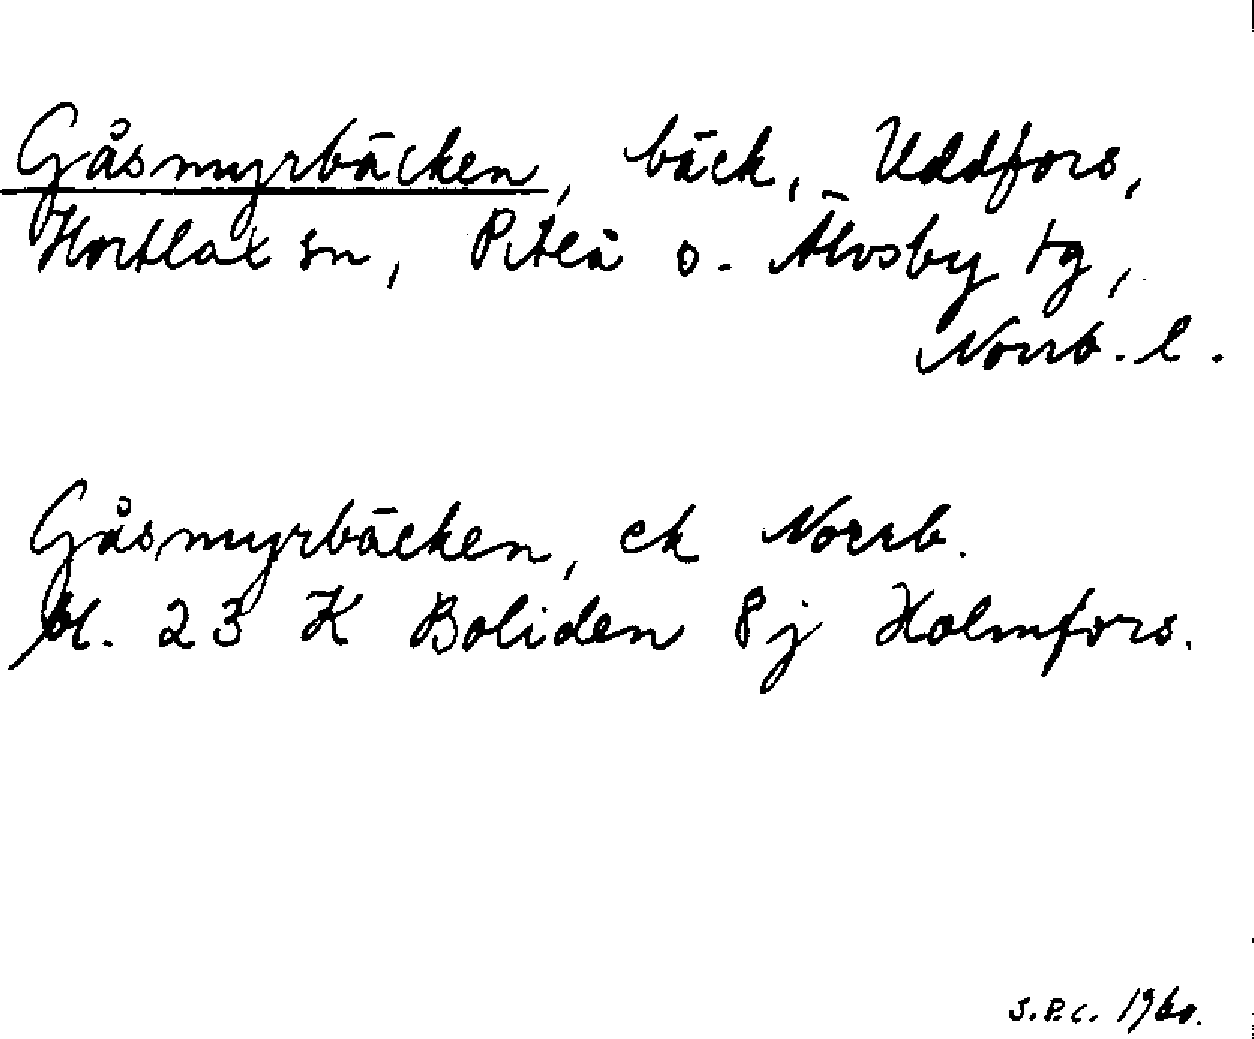 Gåsmyrbäcken, bäck, Uddfors,
Hortlax sn, Piteå o. Älvsby tg,
Norrb. l.
Gåsmyrbäcken, ek Norrb.
bl. 23 K Boliden 8j Holmfors.
1960.